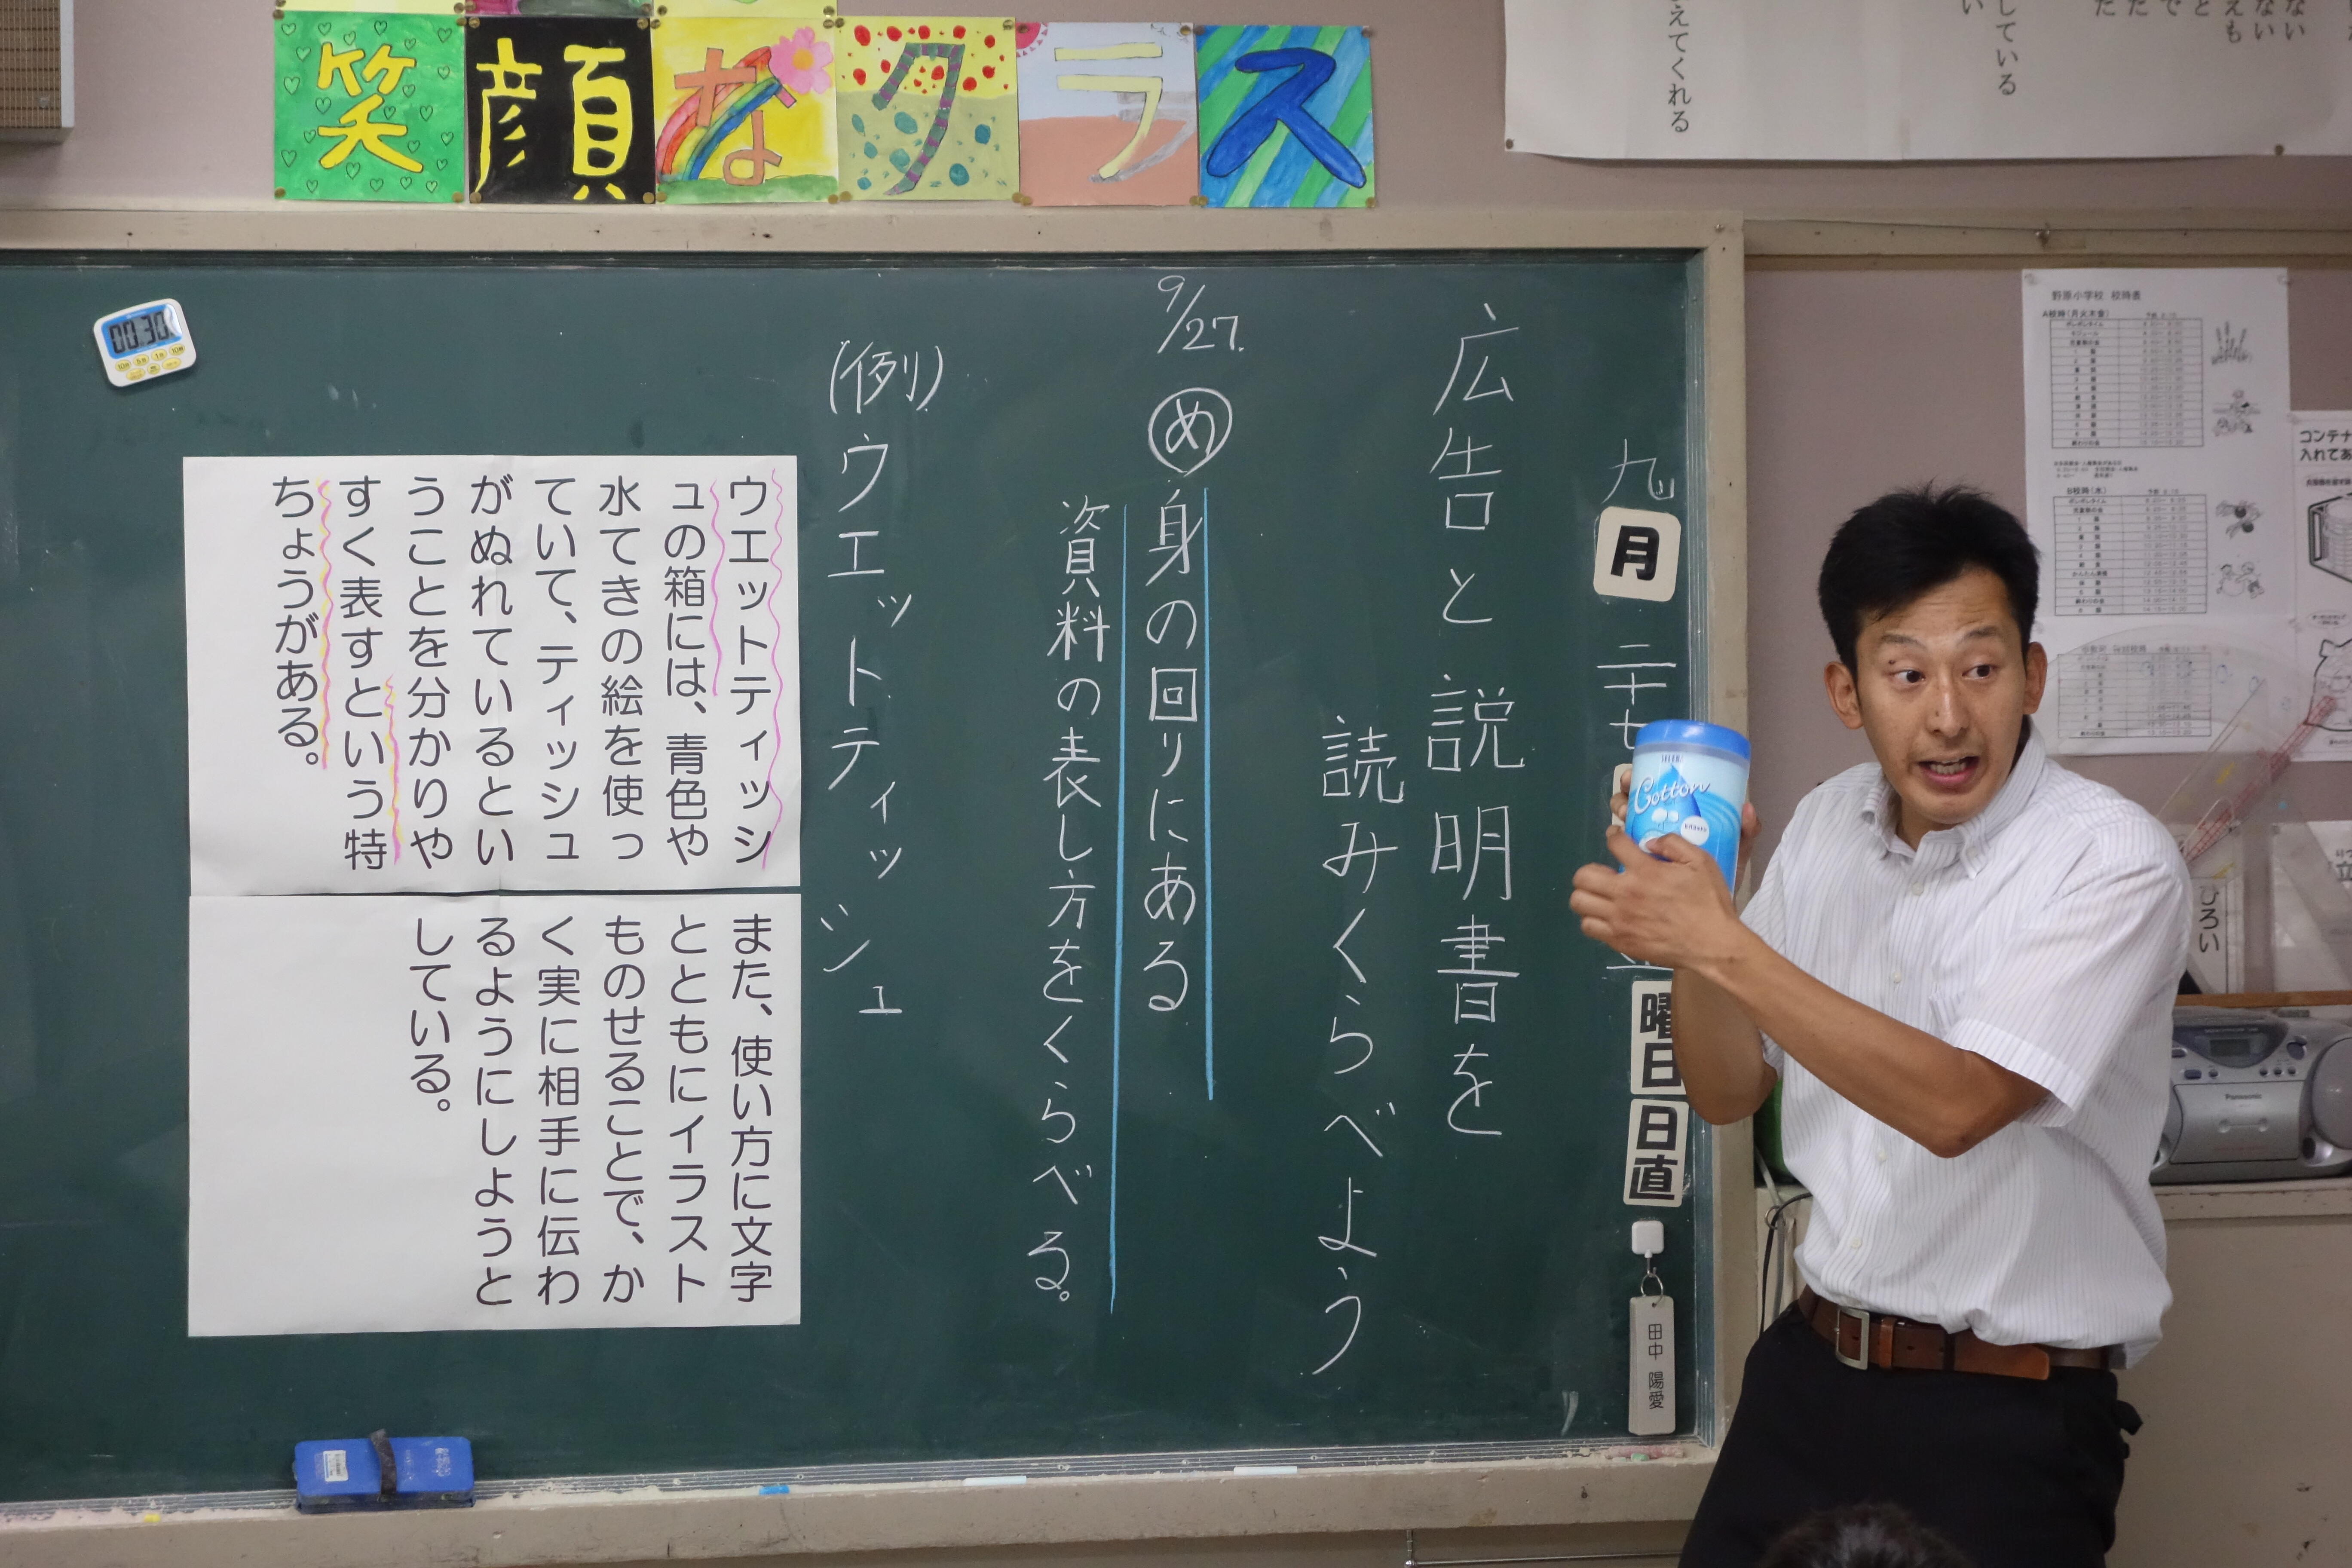 笑顔なクラス
えてくれる
している
い
九月二十七
曜日
日直
田中 陽愛
広告と説明書を
読みくらべよう
9/27.
め 身の回りにある
資料の表し方をくらべる。
(例)ウエットティッシュ
ウエットティッシ
ュの箱には、青色や
水てきの絵を使っ
ていて、ティッシュ
がぬれているとい
うことを分かりや
すく表すという特
ちょうがある。
また、使い方に文字
とともにイラスト
ものせることで、か
く実に相手に伝わ
るようにしようと
している。
00:30
Cotton
野原小学校 校時表
A校時(月火木金)
B校時(水)
コンテナ
入れてあ
ひろい
Panasonic